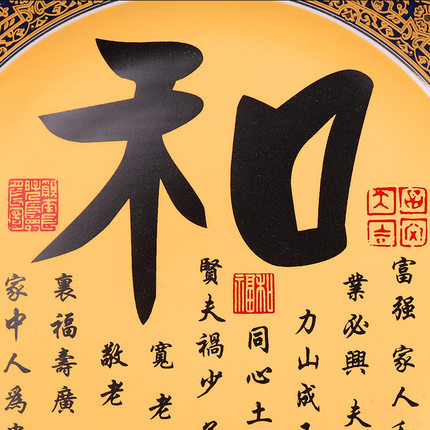 和
富强家人
業必興夫
力山成
同心土
賢夫禍少
寬老
敬老
裏福壽廣
家中人為
和福